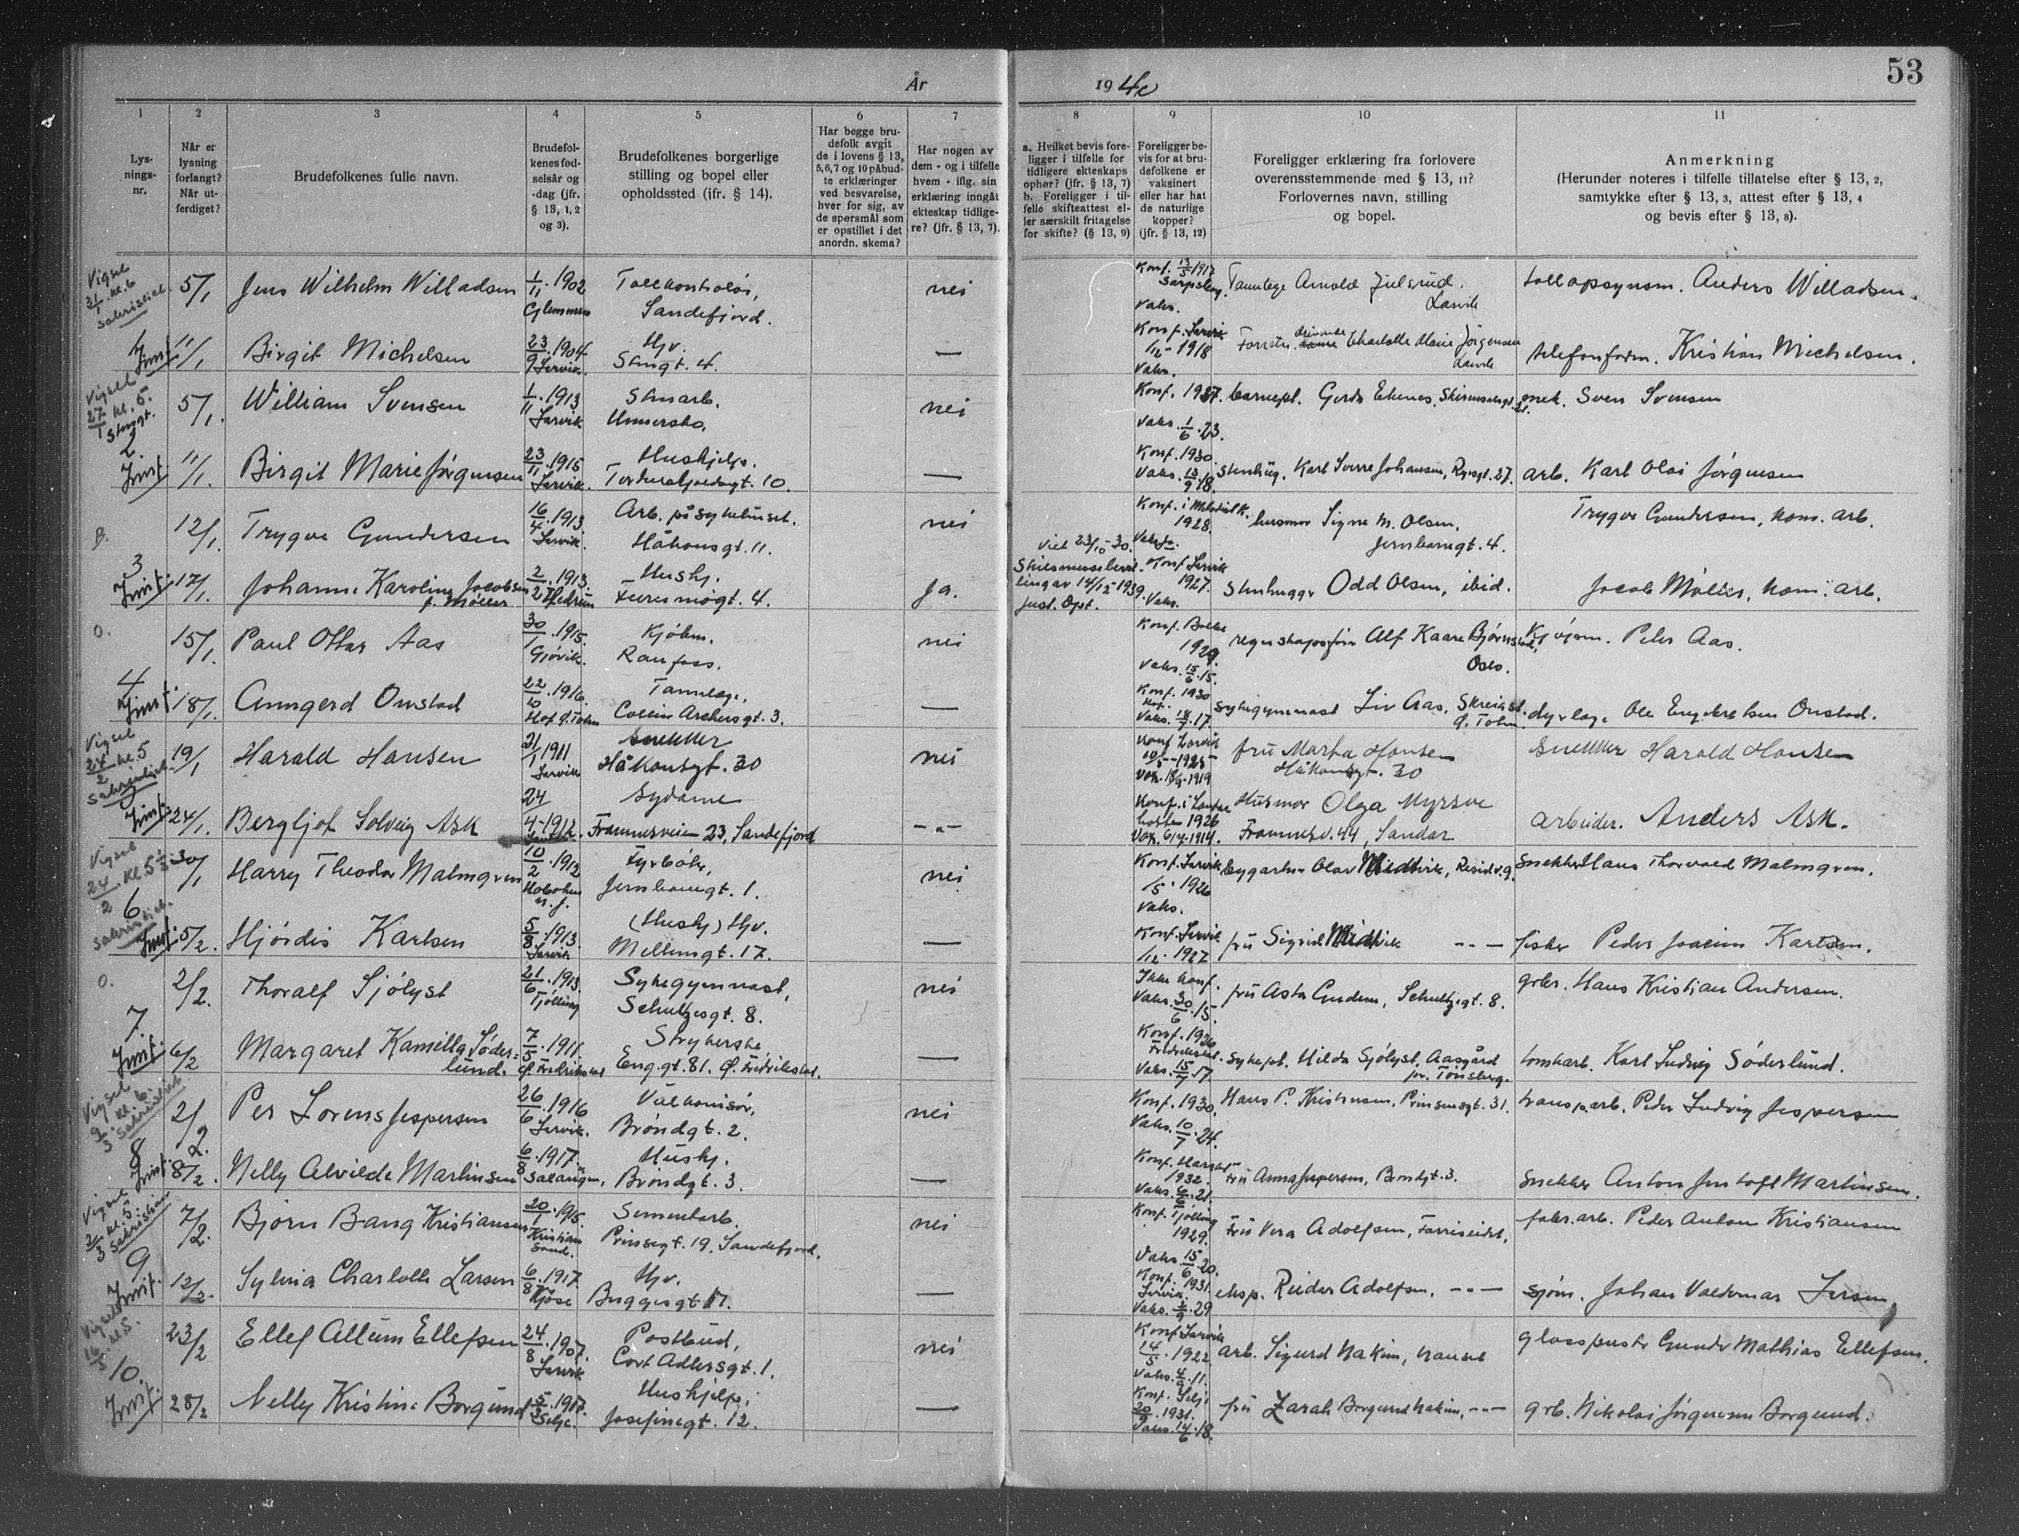 År 1940
53
1 2 3 4 5 6 7 8 9 10 11
Lys-
nings-
nr.
Når er
lysning
forlangt?
Når ut-
ferdiget?
Brudefolkenes fulle navn.
Brudefol-
kenes fød-
selsår og
-dag (jfr.
§ 13, 1, 2
og 3).
Brudefolkenes borgerlige
stilling og bopel eller
opholdssted (jfr. § 14).
Har begge bru-
defolk avgit
de i lovens § 13,
5, 6, 7 og 10 påbud-
te erklæringer
ved besvarelse,
hver for sig, av
de spørsmål som
er opstillet i det
anordn. skema?
Har nogen av
dem - og i tilfelle
hvem - iflg. sin
erklæring inngåt
ekteskap tidlige-
re? (jfr. § 13, 7).
a. Hvilket bevis fore-
ligger i tilfelle for
tidligere ekteskaps
ophør? (jfr. § 13, 7)
b. Foreligger i til-
felle skifteattest el-
ler særskilt fritagelse
for skifte? (§ 13, 9)
Foreligger be-
vis for at bru-
defolkene er
vaksinert
eller har hat
de naturlige
kopper?
(jfr. § 13, 12)
Foreligger erklæring fra forlovere
overensstemmende med § 13, 11?
Forlovernes navn, stilling
og bopel.
Anmerkning
(Herunder noteres i tilfelle tillatelse efter § 13, 2,
samtykke efter § 13, 3, attest efter § 13, 4
og bevis efter § 13, 8).
Vigsel 31/1 kl. 6 sakristiet
5/1 Jens Wilhelm Willadsen 1/11.1902 Glemmen Tollkontrolør, Sandefjord. nei Konf. 13/5 1917 Sarpsborg Vaks. Tannlege Arnold Julsrud. Larvik tolloppsynsm. Anders Willadsen.
1 11/1 Birgit Michelsen 23/9.1904 Larvik. Hjv. Stengt. 4. — Konf. Larvik 1918 Vaks. Forretn. drivende Charlotte Marie Jørgensen Larvik telefonform. Kristian Michelsen.
Vigsel 27/1 kl. 5. Stengt.
5/1. William Svensen 1/11.1913 Larvik Stenarb. Unnersbo. nei Konf. 1927. Vaks. 1/6.23. barnepl. Gerda Ekenes, mek. Sven Svensen
2 11/1 Birgit Marie Jørgensen 23/11.1915 Larvik. Hushjelp. Tordenskjoldsgt. 10. — Konf. 1930 Vaks. 13/9.18. stenhug. Karl Sverre Johansen, 27. arb. Karl Olai Jørgensen
B. 12/1. Trygve Gundersen 16/4.1913. Larvik. Arb. på sykehuset. Håkonsgt. 11. nei Konf. i Metodistk. 1928. Vaks. Ja husmor Signe M. Olsen, Jernbanegt. 4. Trygve Gundersen, kom. arb.
3 17/1. Johanne Karoline Jacobsen f. Møller 2/2.1913. Hedrum Hushj. 4. Ja. Viet 23/10-30. Skilsmissebevilling av 14/12-1939. Just. Dpt. Konf. Larvik 1927. Vaks. stenhugger Odd Olsen, ibid. Jacob Møller, kom. arb.
O. 15/1. Paul Ottar Aas 30/1.1915. Gjøvik. Kjøbm. Raufoss. nei Konf. 1929. Vaks. 15/6.15. regnskapsfører Alf Kaare Bjørnstad, Oslo. Kjøpm. Peter Aas.
4 18/1. Anngerd Onstad 22/10.1916. Hof Ø. Toten Tannlege, Colin Archersgt. 3. — Konf. 1930 Hof. Vaks. 17. sykegymnast Liv Aas, Skreia st. Ø. Toten. dyrlege Ole Engebretsen Onstad.
Vigsel 24/2 kl. 5 sakristiet
19/1 Harald Hansen 21/1 1911 Larvik snekker Håkonsgt. 30 nei Konf. Larvik 10/5-1925 Vak. 1919 fru Marta Hansen Håkonsgt. 30 snekker Harald Hansen
24/1. Bergljot Solveig Ask 24/4-1912. sydame Framnesveien 23, Sandefjord -"- Konf. i Sandar høsten 1926 Vak. 1914. Husmor Olga Myrsve Framnesv. 44, Sandar arbeider. Anders Ask.
Vigsel 24/2 kl. 5 1/2 sakristiet
30/1 Harry Theodor Malmgren 10/2.1912 Hoboken N. J. Fyrbøter, Jernbanegt. 1. nei Konf. Larvik 1926 Vaks. byggarb. Olav Midtvik, Residv. 9. snekker Hans Thorvald Malmgren.
6 5/2. Hjørdis Karlsen 5/8.1913. Larvik (Hushj) Hjv. Mellemgt. 17. — Konf. Larvik 1927. fru Sigrid Midtvik -"- fisker Peder Joacim Karlsen.
O. 2/2. Thoralf Sjølyst 21/6.1913. Tjølling Sykegymnast, Schultzesgt. 8. nei Ikke konf. Vaks. 30/6.15. fru Asta Gudem, Schultzegt. 8. grbr. Hans Kristian Andersen.
7. 6/2 Margaret Kamilla Søderlund. 7/5.1911. Ø. Fredrikstad Strykerske Eng.gt. 81. Ø. Fredrikstad. — Konf. 1926 Fredrikstad. Vaks. 17. sykepl. Hilda Sjølyst, Aasgård pr. Tønsberg. tomtearb. Karl Ludvig Søderlund.
Vigsel 9/3 kl. 6. sakristiet
2/2. Per Lorens Jespersen 26/6.1916 Larvik. Vulkanisør, Brøndgt. 2. nei Konf. 1930. Vaks. 10/7.24. Hans P. Kristensen, Prinsensgt. 31. transp.arb. Peder Ludvig Jespersen
8 8/2. Nelly Alvilde Martinsen 6/8.1917. Salangen, Hushj. Brøndgt. 3. — Konf. Harstad 1932. Vaks. 6/6.21. fru Anna Jespersen, Brøndgt. 3. snekker Anton Martinsen.
Vigsel 2/3 kl. 5. sakristian
7/2. Bjørn Bang Kristiansen 20/1.1915. Kristiansand. Sementarb. Prinsegt. 19. Sandefjord. nei Konf. Tjølling 1929. Vaks 15/6.20. Fru Vera Adolfsen, Farriseidet. fabr. arb. Peder Anton Kristiansen
9. 12/2 Sylvia Charlotte Larsen 6/8.1917. Kjose Hjv. Buggesgt. 17. — Konf. 1931. Larvik. Vaks. 29 eksp. Reidar Adolfsen, -"- sjøm. Johan Valdemar Larsen
Vigsel 16/5 kl. 5.
23/2 Ellef Allum Ellefsen 24/8.1907. Larvik Postbud, Cort Adlersgt. 1. nei Konf. Larvik 14/5.1922 Vaks. 11. arb. Sigurd Hakim, Nanset glasspuster Gunder Mathias Ellefsen.
10. 28/2 Nelly Kristine Borgund 5/3.1917. Selje. Hushjelp, Josefinegt. 12. — Konf. Selje 1931. Vaks. 14/6.18. fru Zarah Borgund Hakim, -"- grb. Nikolai Jørgensen Borgund.